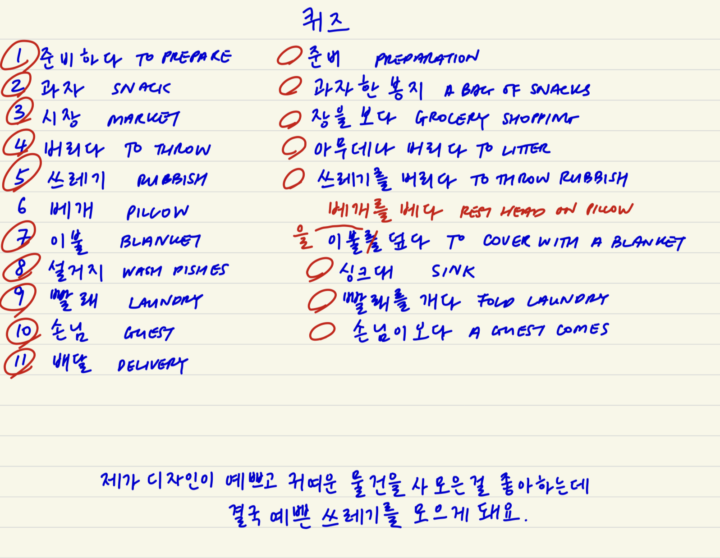 퀴즈
1 준비하다 TO PREPARE 준비 PREPARATION
2 과자 SNACK 과자 한 봉지 A BAG OF SNACKS
3 시장 MARKET 장을 보다 GROCERY SHOPPING
4 버리다 TO THROW 아무데나 버리다 TO LITTER
5 쓰레기 RUBBISH 쓰레기를 버리다 TO THROW RUBBISH
6 베개 PILLOW 베개를 베다 REST HEAD ON PILLOW
7 이불 BLANKET 을 이불를 덮다 TO COVER WITH A BLANKET
8 설거지 WASH DISHES 싱크대 SINK
9 빨래 LAUNDRY 빨래를 개다 FOLD LAUNDRY
10 손님 GUEST 손님이 오다 A GUEST COMES
11 배달 DELIVERY
제가 디자인이 예쁘고 귀여운 물건을 사 모은걸 좋아하는데
결국 예쁜 쓰레기를 모으게 돼요.